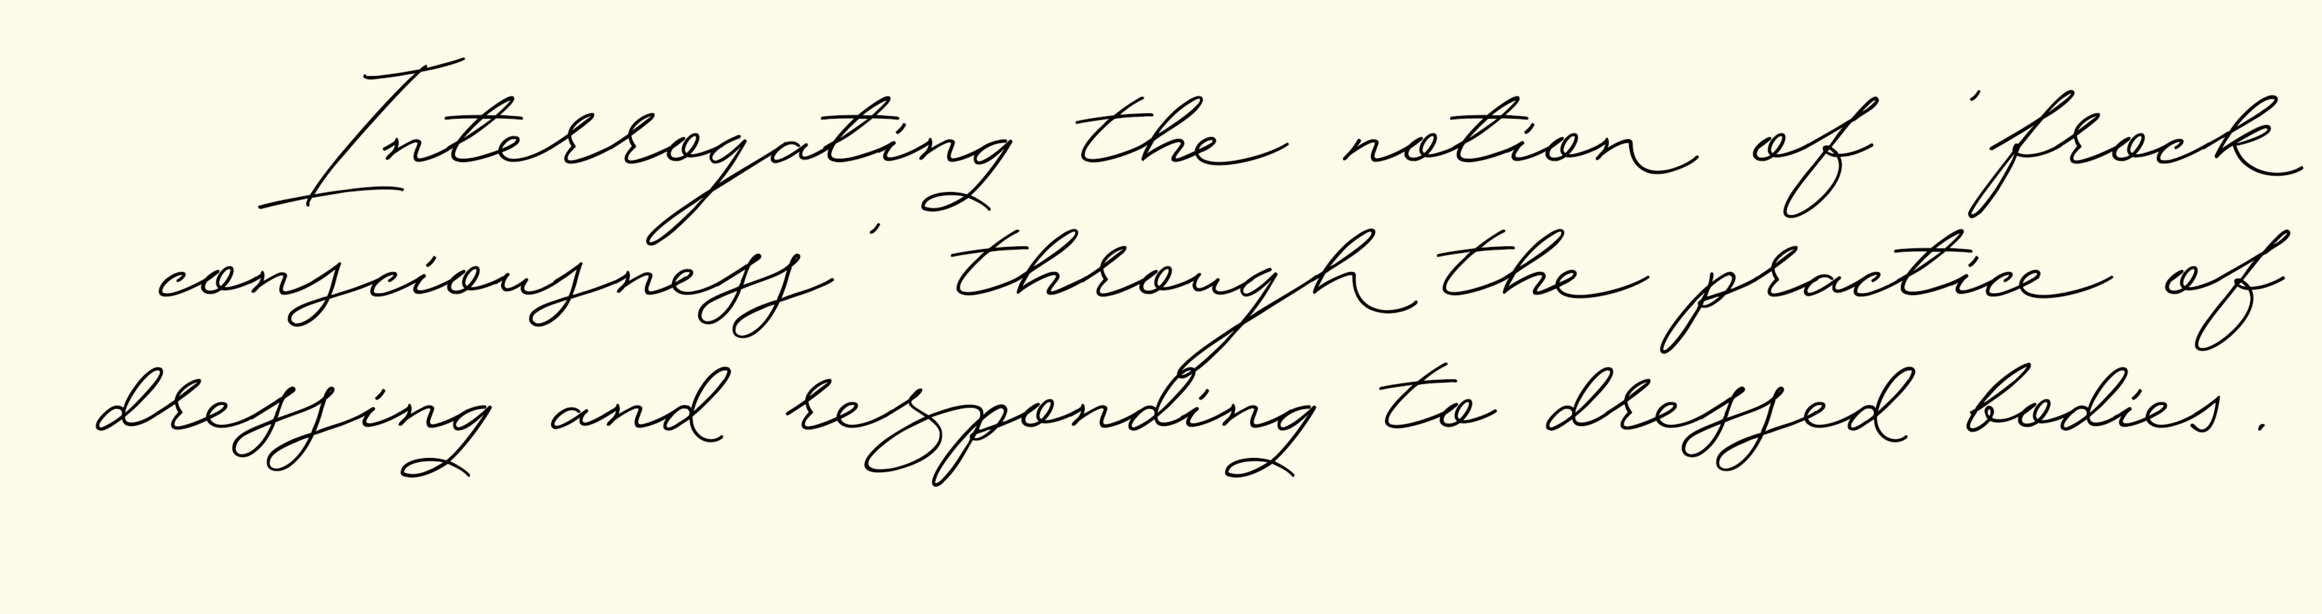 Interrogating the notion of 'frock
consciousness' through the practice of
dressing and responding to dressed bodies.